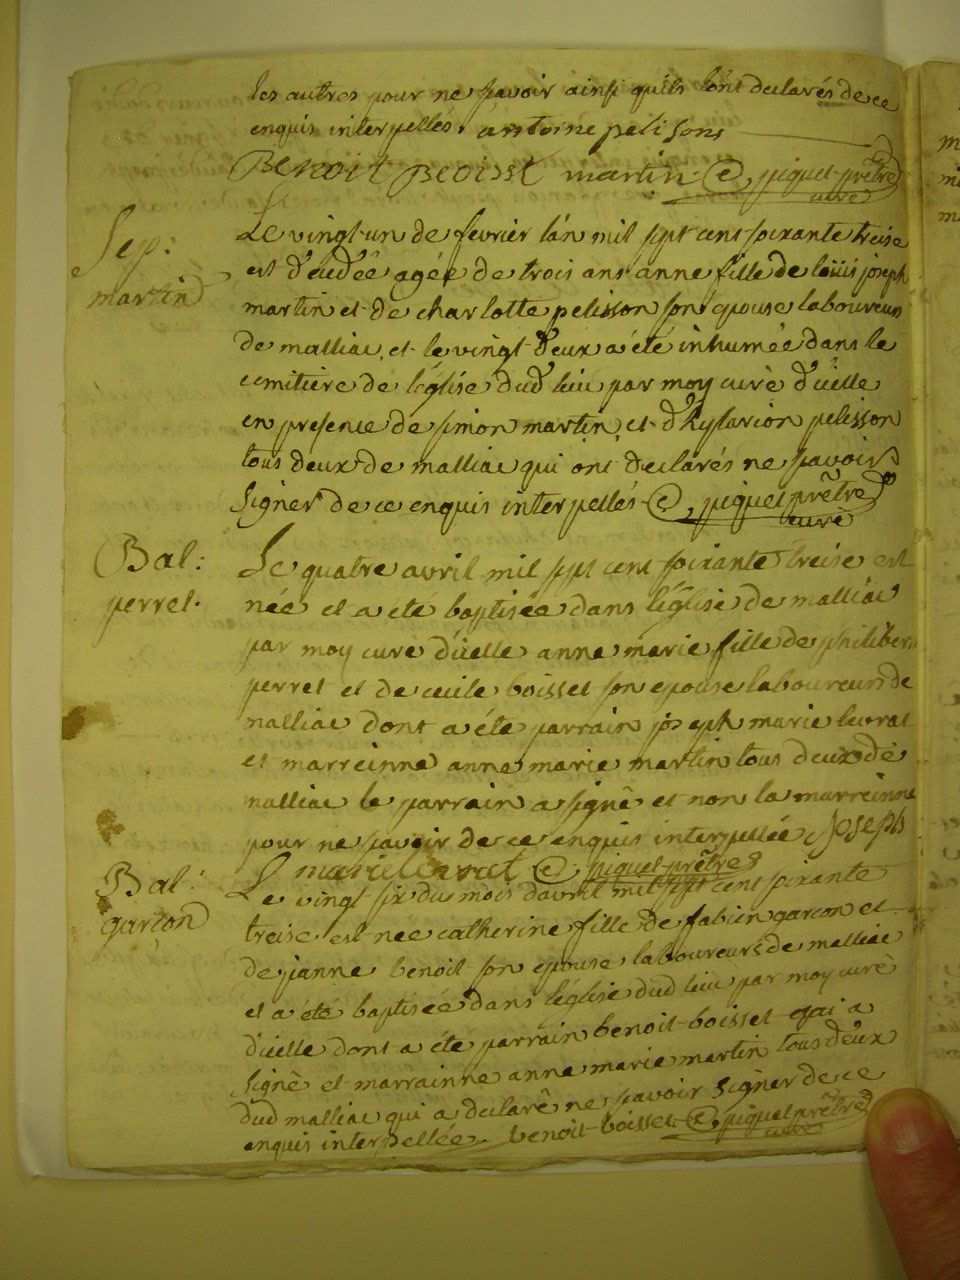 les autres pour ne sçavoir ainsi quils lont declarés de ce
enquis interpellés. antoine pelisons
BENOIT BEOISST martin piquet prêtre
curé
Sep:
martin
Le vingt un de fevrier lan mil sept cent soixante treise
est décédée agée de trois ans anne fille de loüis joseph
martin et de charlotte pelisson son epouse laboureurs
de malliac, et le vingt deux a été inhumée dans le
cemitiere de léglise dud lieu par moy curé dicelle
en presence de simon martin, et dhylarion pelisson
tous deux de malliac qui ont declarés ne sçavoir
signer de ce enquis interpellés piquet prêtre
curé
Bal:
perret.
Le quatre avril mil sept cent soixante treise est
née et a eté baptisée dans léglise de malliac
par moy curé dicelle anne marie fille de philibert
perret et de cecile boisset son epouse laboureurs de
malliac dont a été parrain joseph marie levrat
et marreinne anne marie martin tous deux de
malliac le parrain a signé et non la marreinne
pour ne sçavoir de ce enquis interpellée Joseph
marie levrat piquet prêtre
Bal:
garçon
Le vingt six du mois davril mil sept cent soixante
treise est née catherine fille de fabien garçon et
de janne benoit son epouse laboureurs de malliac
et a été baptisée dans léglise dud lieu par moy curé
dicelle dont a été parrain benoit boisset qui a
signé et marrainne anne marie martin tous deux
dud malliac qui a declaré ne sçavoir signer de ce
enquis interpellée. benoit boisset piquet prêtre
curé